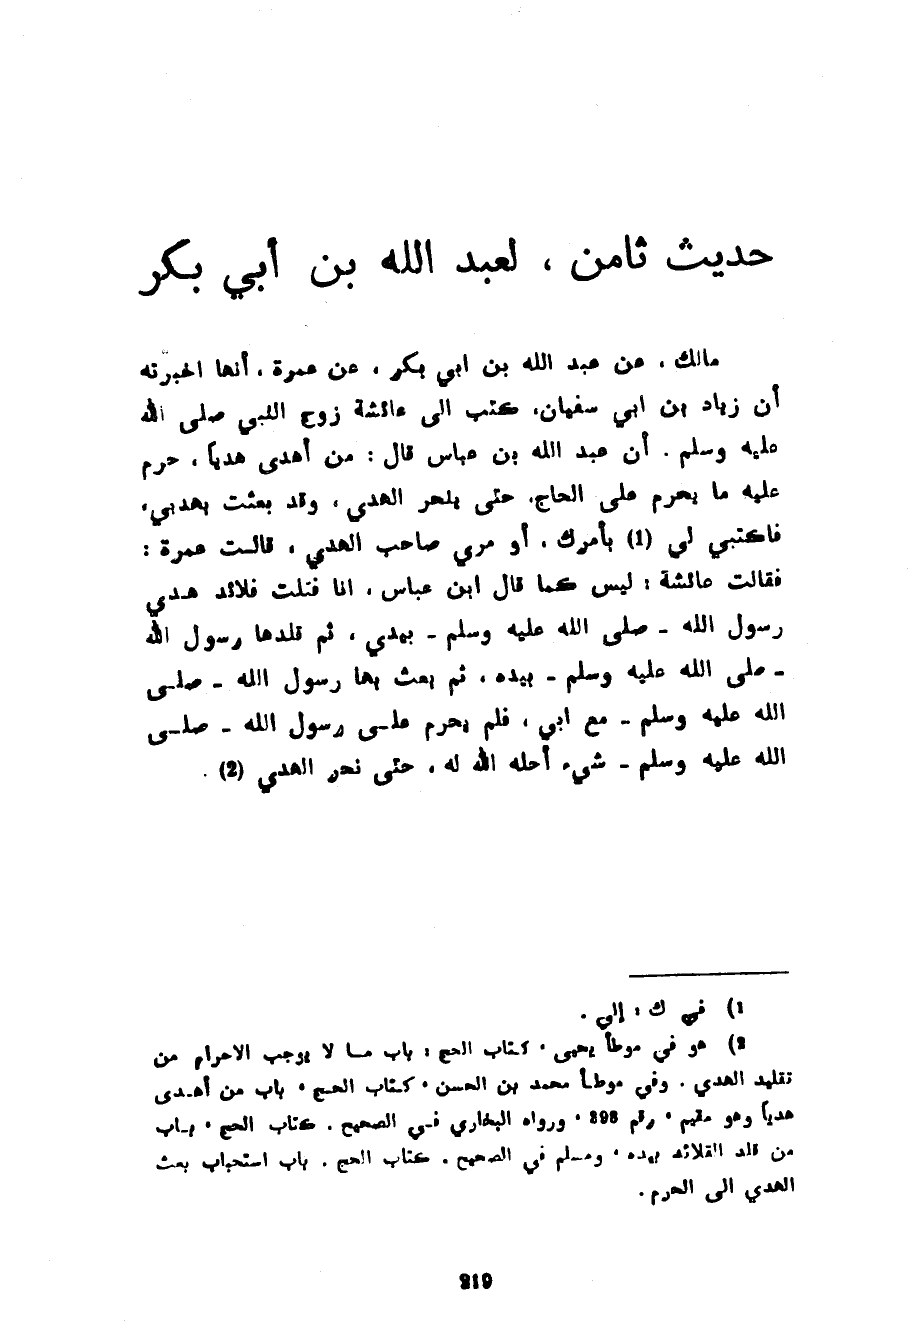 حديث ثامن ، لعبد الله بن أبي بكر
مالك ، عن عبد الله بن ابي بكر ، عن عمرة ، أنها اخبرته
أن زياد بن ابي سفيان، كتب الى عائشة زوج النبي صلى الله
عليه وسلم . أن عبد الله بن عباس قال : من أهدى هدياً ، حرم
عليه ما يحرم على الحاج، حتى ينحر الهدي ، وقد بعثت بهديي،
فاكتبي لي (1) بأمرك ، أو مري صاحب الهدي ، قالت عمرة :
فقالت عائشة : ليس كما قال ابن عباس ، انا فتلت قلائد هدي
رسول الله - صلى الله عليه وسلم - بيدي ، ثم قلدها رسول الله
- صلى الله عليه وسلم - بيده ، ثم بعث بها رسول الله - صلى
الله عليه وسلم - مع ابي ، فلم يحرم على رسول الله - صلى
الله عليه وسلم - شيء أحله الله له ، حتى نحر الهدي (2) .
1) في ك : إلي .
2) هو في موطأ يحيى ، كتاب الحج : باب ما لا يوجب الاحرام من
تقليد الهدي . وفي موطأ محمد بن الحسن ، كتاب الحج ، باب من أهدى
هدياً وهو مقيم ، رقم 398 ، ورواه البخاري في الصحيح . كتاب الحج ، باب
من قلد القلائد بيده ، ومسلم في الصحيح . كتاب الحج . باب استحباب بعث
الهدي الى الحرم .
219